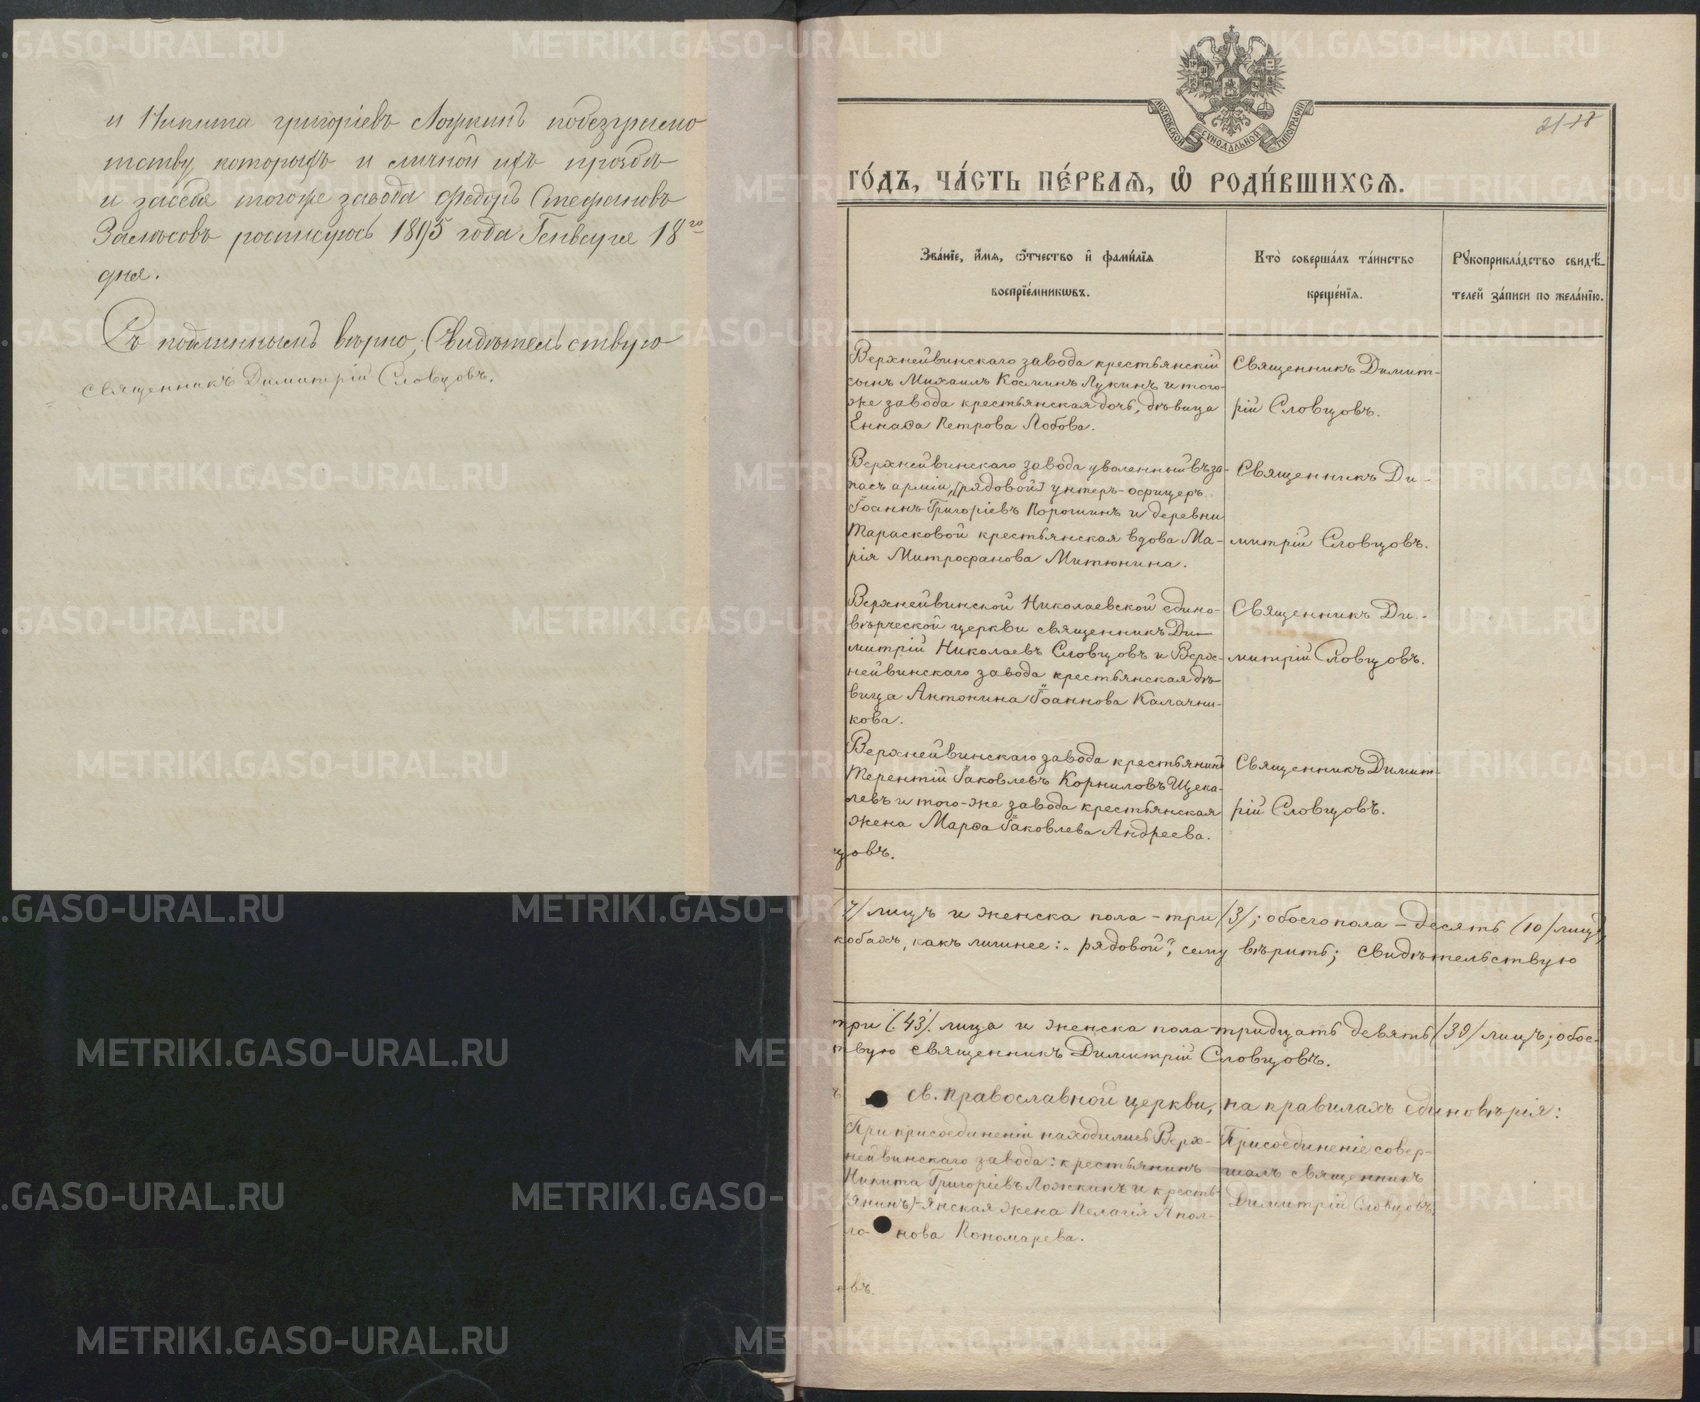 и Никита григоріевъ Ложкинъ побезграмо
тству которыхъ и личной ихъ прозбѣ
и засебя тогоже завода Федоръ Стефановъ
Залѣсовъ росписуюсь 1895 года Генвеуря 18го
дня.
Съ подлиннымъ вѣрно, Свидѣтельствую
священникъ Димитрій Словцовъ.
МОСКОВСКОЙ СѴНОДАЛЬНОЙ ТИПОГРАФІИ
го́дъ, ча́сть пе́рваѧ, ѽ роди́вшихсѧ.
Зва́нїе, и҆́мѧ, ѻ҆́тчество и҆ фами́лїѧ
воспрїе́мникѡвъ.
Кто̀ соверша́лъ та́инство
креще́нїѧ.
Рꙋкоприкла́дство свидѣ́-
телей за́писи по жела́нїю.
Верхнейвинскаго завода крестьянскій
сынъ Михаилъ Космин Лукинъ и того-
же завода крестьянская дочь, дѣвица
Еннаѳа Петрова Лобова.
Священникъ Димит-
рій Словцовъ.
Верхнейвинскаго завода уволенный въ за-
пасъ арміи, [рядовой] унтеръ-офицеръ
Іоаннъ Григоріевъ Порошинъ и деревни
Тарасковой крестьянская вдова Ма-
рія Митрофанова Митюнина.
Священникъ Ди-
митрій Словцовъ.
Верхнейвинской Николаевской едино-
вѣрческой церкви священникъ Ди-
митрій Николаевъ Словцовъ и Верх-
нейвинскаго завода крестьянская дѣ-
вица Антонина Іоаннова Калачни-
кова.
Священникъ Ди-
митрій Словцовъ.
Верхнейвинскаго завода крестьянинъ
Терентій Іаковлевъ Корниловъ Щека-
левъ и того-же завода крестьянская
жена Марѳа Іаковлева Андреева.
Священникъ Димит-
рій Словцовъ.
цовъ.
7/ лицъ и женска пола - три /3/; обоего пола - десять (10/ лицъ,
кобахъ, какъ лишнее: "рядовой", сему вѣрить; свидѣтельствую
три /43/ лица и женска пола - тридцать девять /39/ лицъ; обое-
твую священникъ Димитрій Словцовъ.
св. православной церкви, на правилахъ единовѣрія:
При присоединеніи находились Верх-
нейвинскаго завода: крестьянинъ
Никита Григоріевъ Ложкинъ и кресть-
(янинъ)-янская жена Пелагія Апол-
ло- нова Пономарева.
Присоединеніе совер-
шалъ священникъ
Димитрій Словцовъ.
овъ.
METRIKI.GASO-URAL.RU